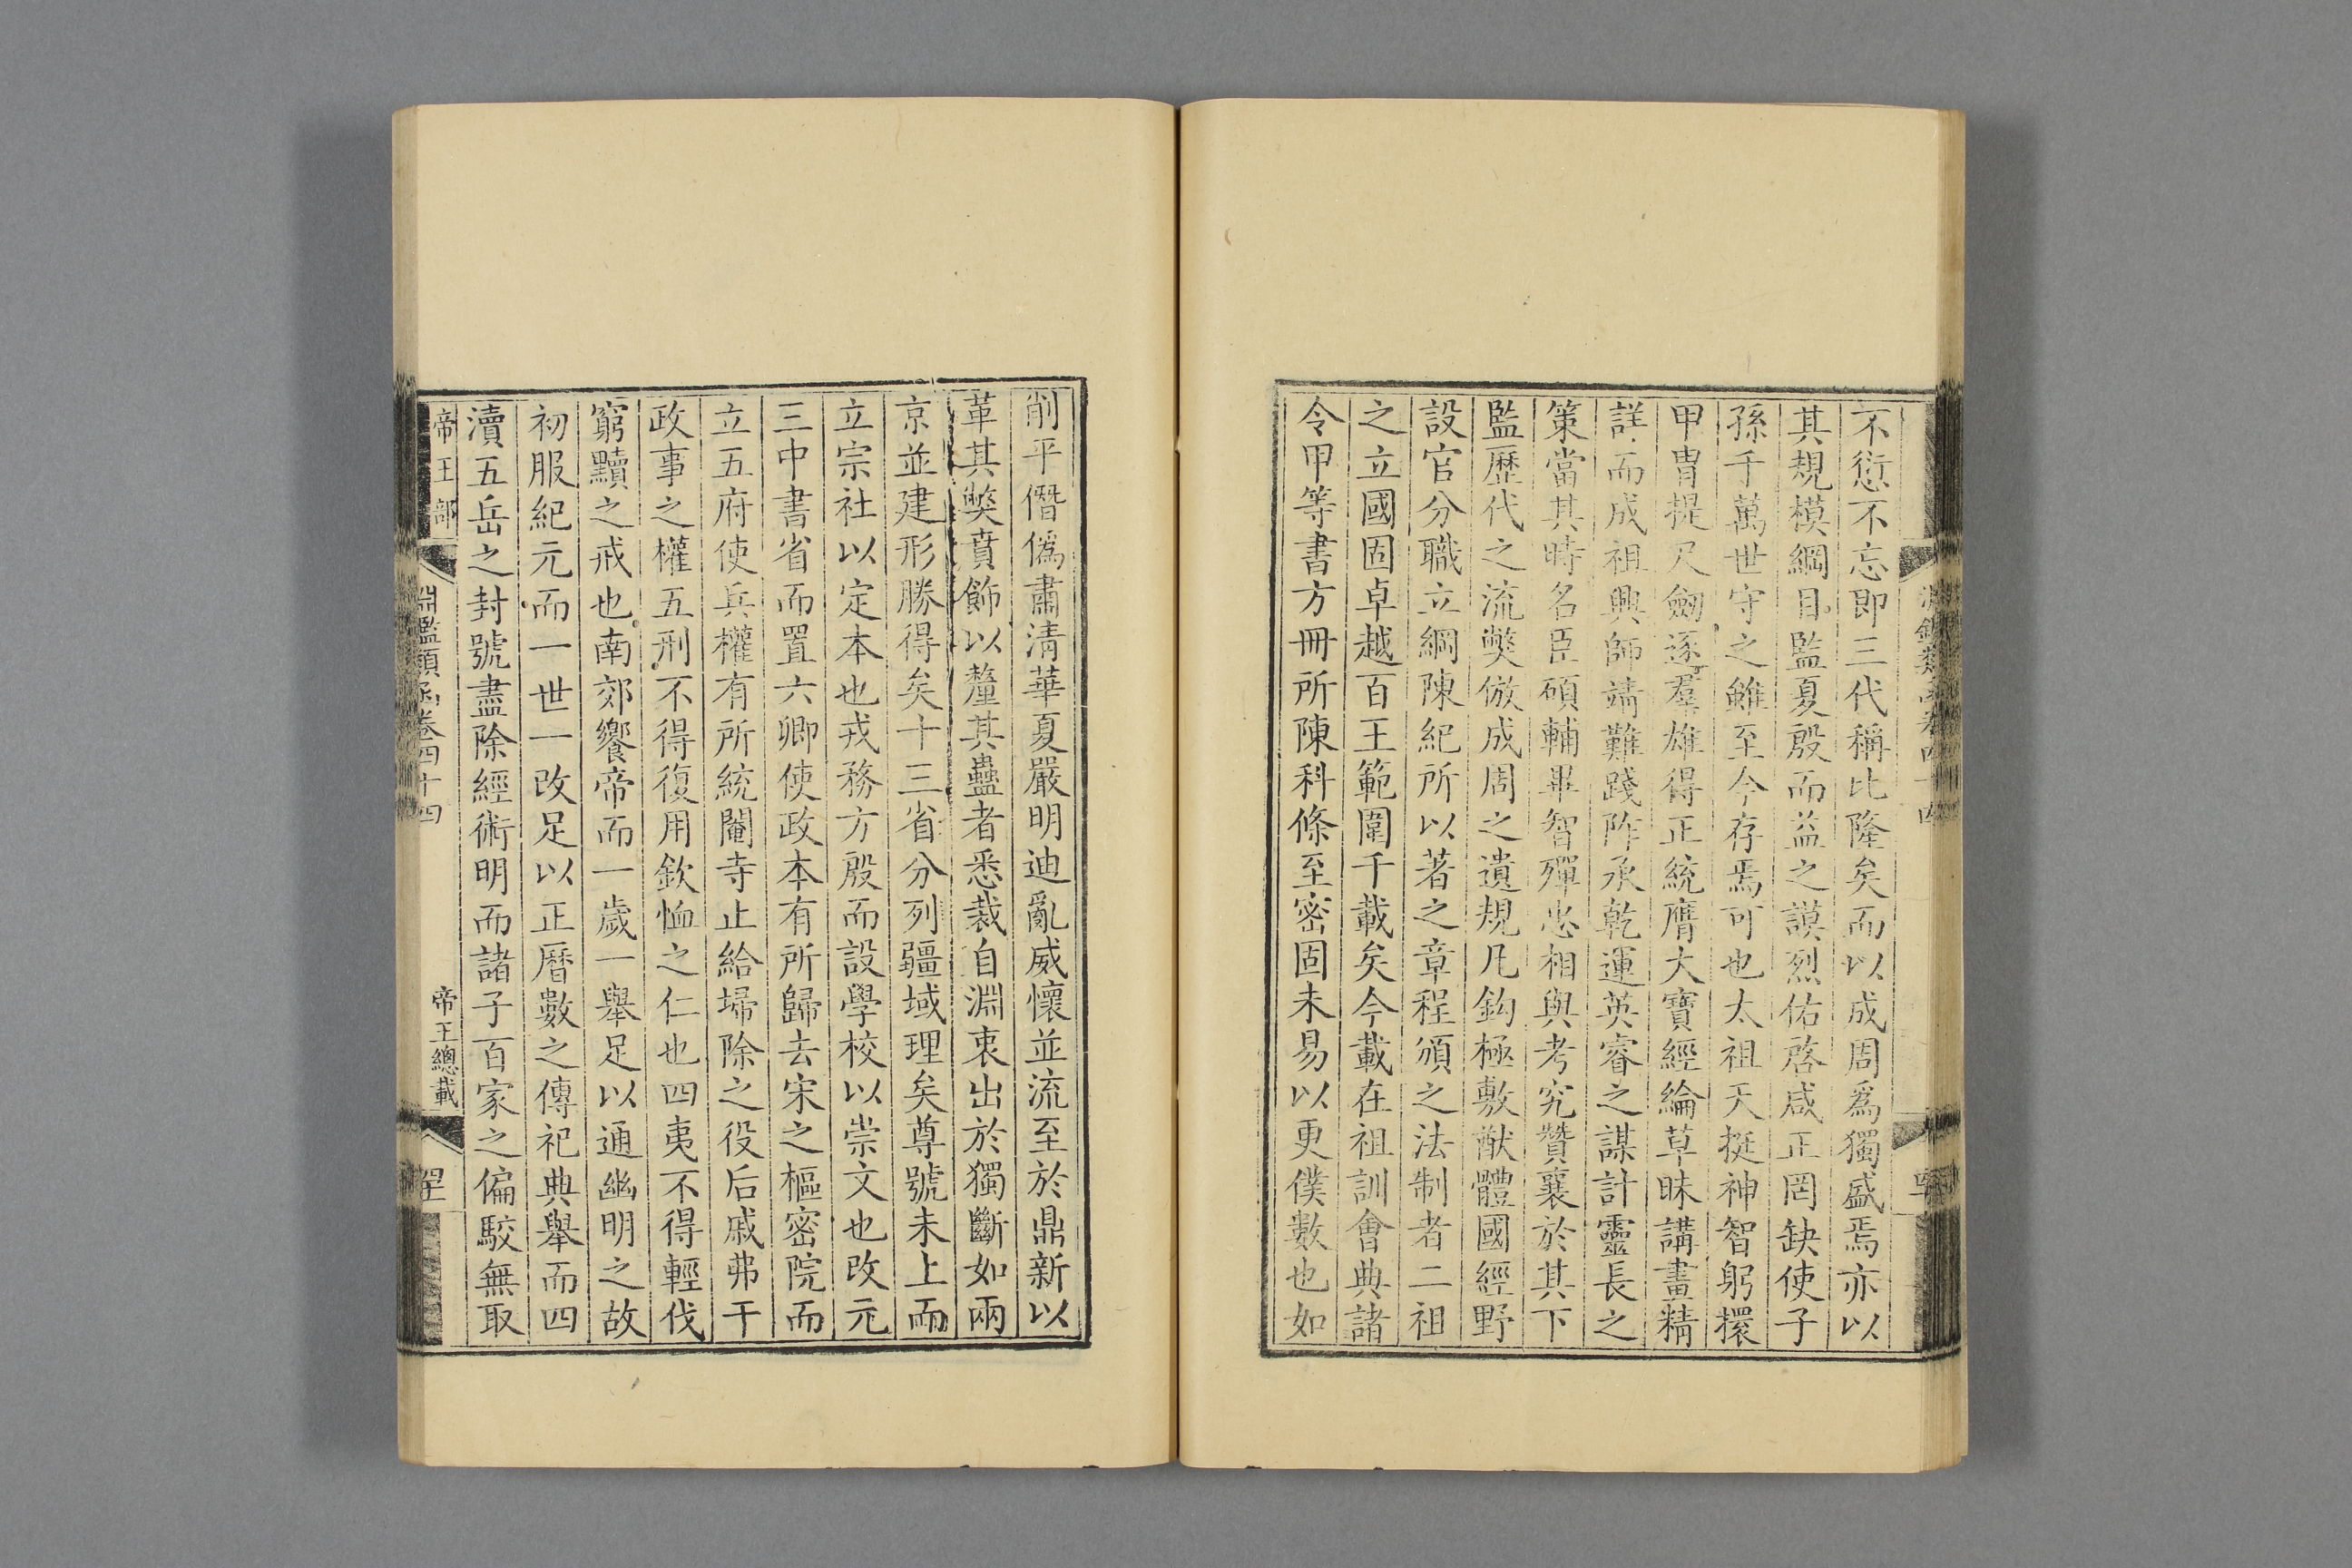 不愆不忘即三代稱比隆矣而以成周爲獨盛焉亦以
其規模綱目監夏殷而益之謨烈佑啓咸正罔缺使子
孫千萬世守之雖至今存焉可也太祖天挺神智躬擐
甲冑提尺劒逐羣雄得正統膺大寶經綸草昧講畫精
詳而成祖興師靖難踐阼承乾運英睿之謀計靈長之
策當其時名臣碩輔畢智殫忠相與考究贊襄於其下
監歷代之流獘倣成周之遺規凡鈎極敷猷體國經野
設官分職立綱陳紀所以著之章程頒之法制者二祖
之立國固卓越百王範圍千載矣今載在祖訓會典諸
令甲等書方冊所陳科條至密固未易以更僕數也如
削平僭僞肅清華夏嚴明迪亂威懷並流至於鼎新以
革其獘賁飾以釐其蠱者悉裁自淵衷出於獨斷如兩
京並建形勝得矣十三省分列疆域理矣尊號未上而
立宗社以定本也戎務方殷而設學校以崇文也改元
三中書省而置六卿使政本有所歸去宋之樞密院而
立五府使兵權有所統閹寺止給埽除之役后戚弗干
政事之權五刑不得復用欽恤之仁也四夷不得輕伐
窮黷之戒也南郊饗帝而一歲一舉足以通幽明之故
初服紀元而一世一改足以正曆數之傳祀典舉而四
瀆五岳之封號盡除經術明而諸子百家之偏駁無取
帝王部
淵鑑類函卷四十四
帝王總載